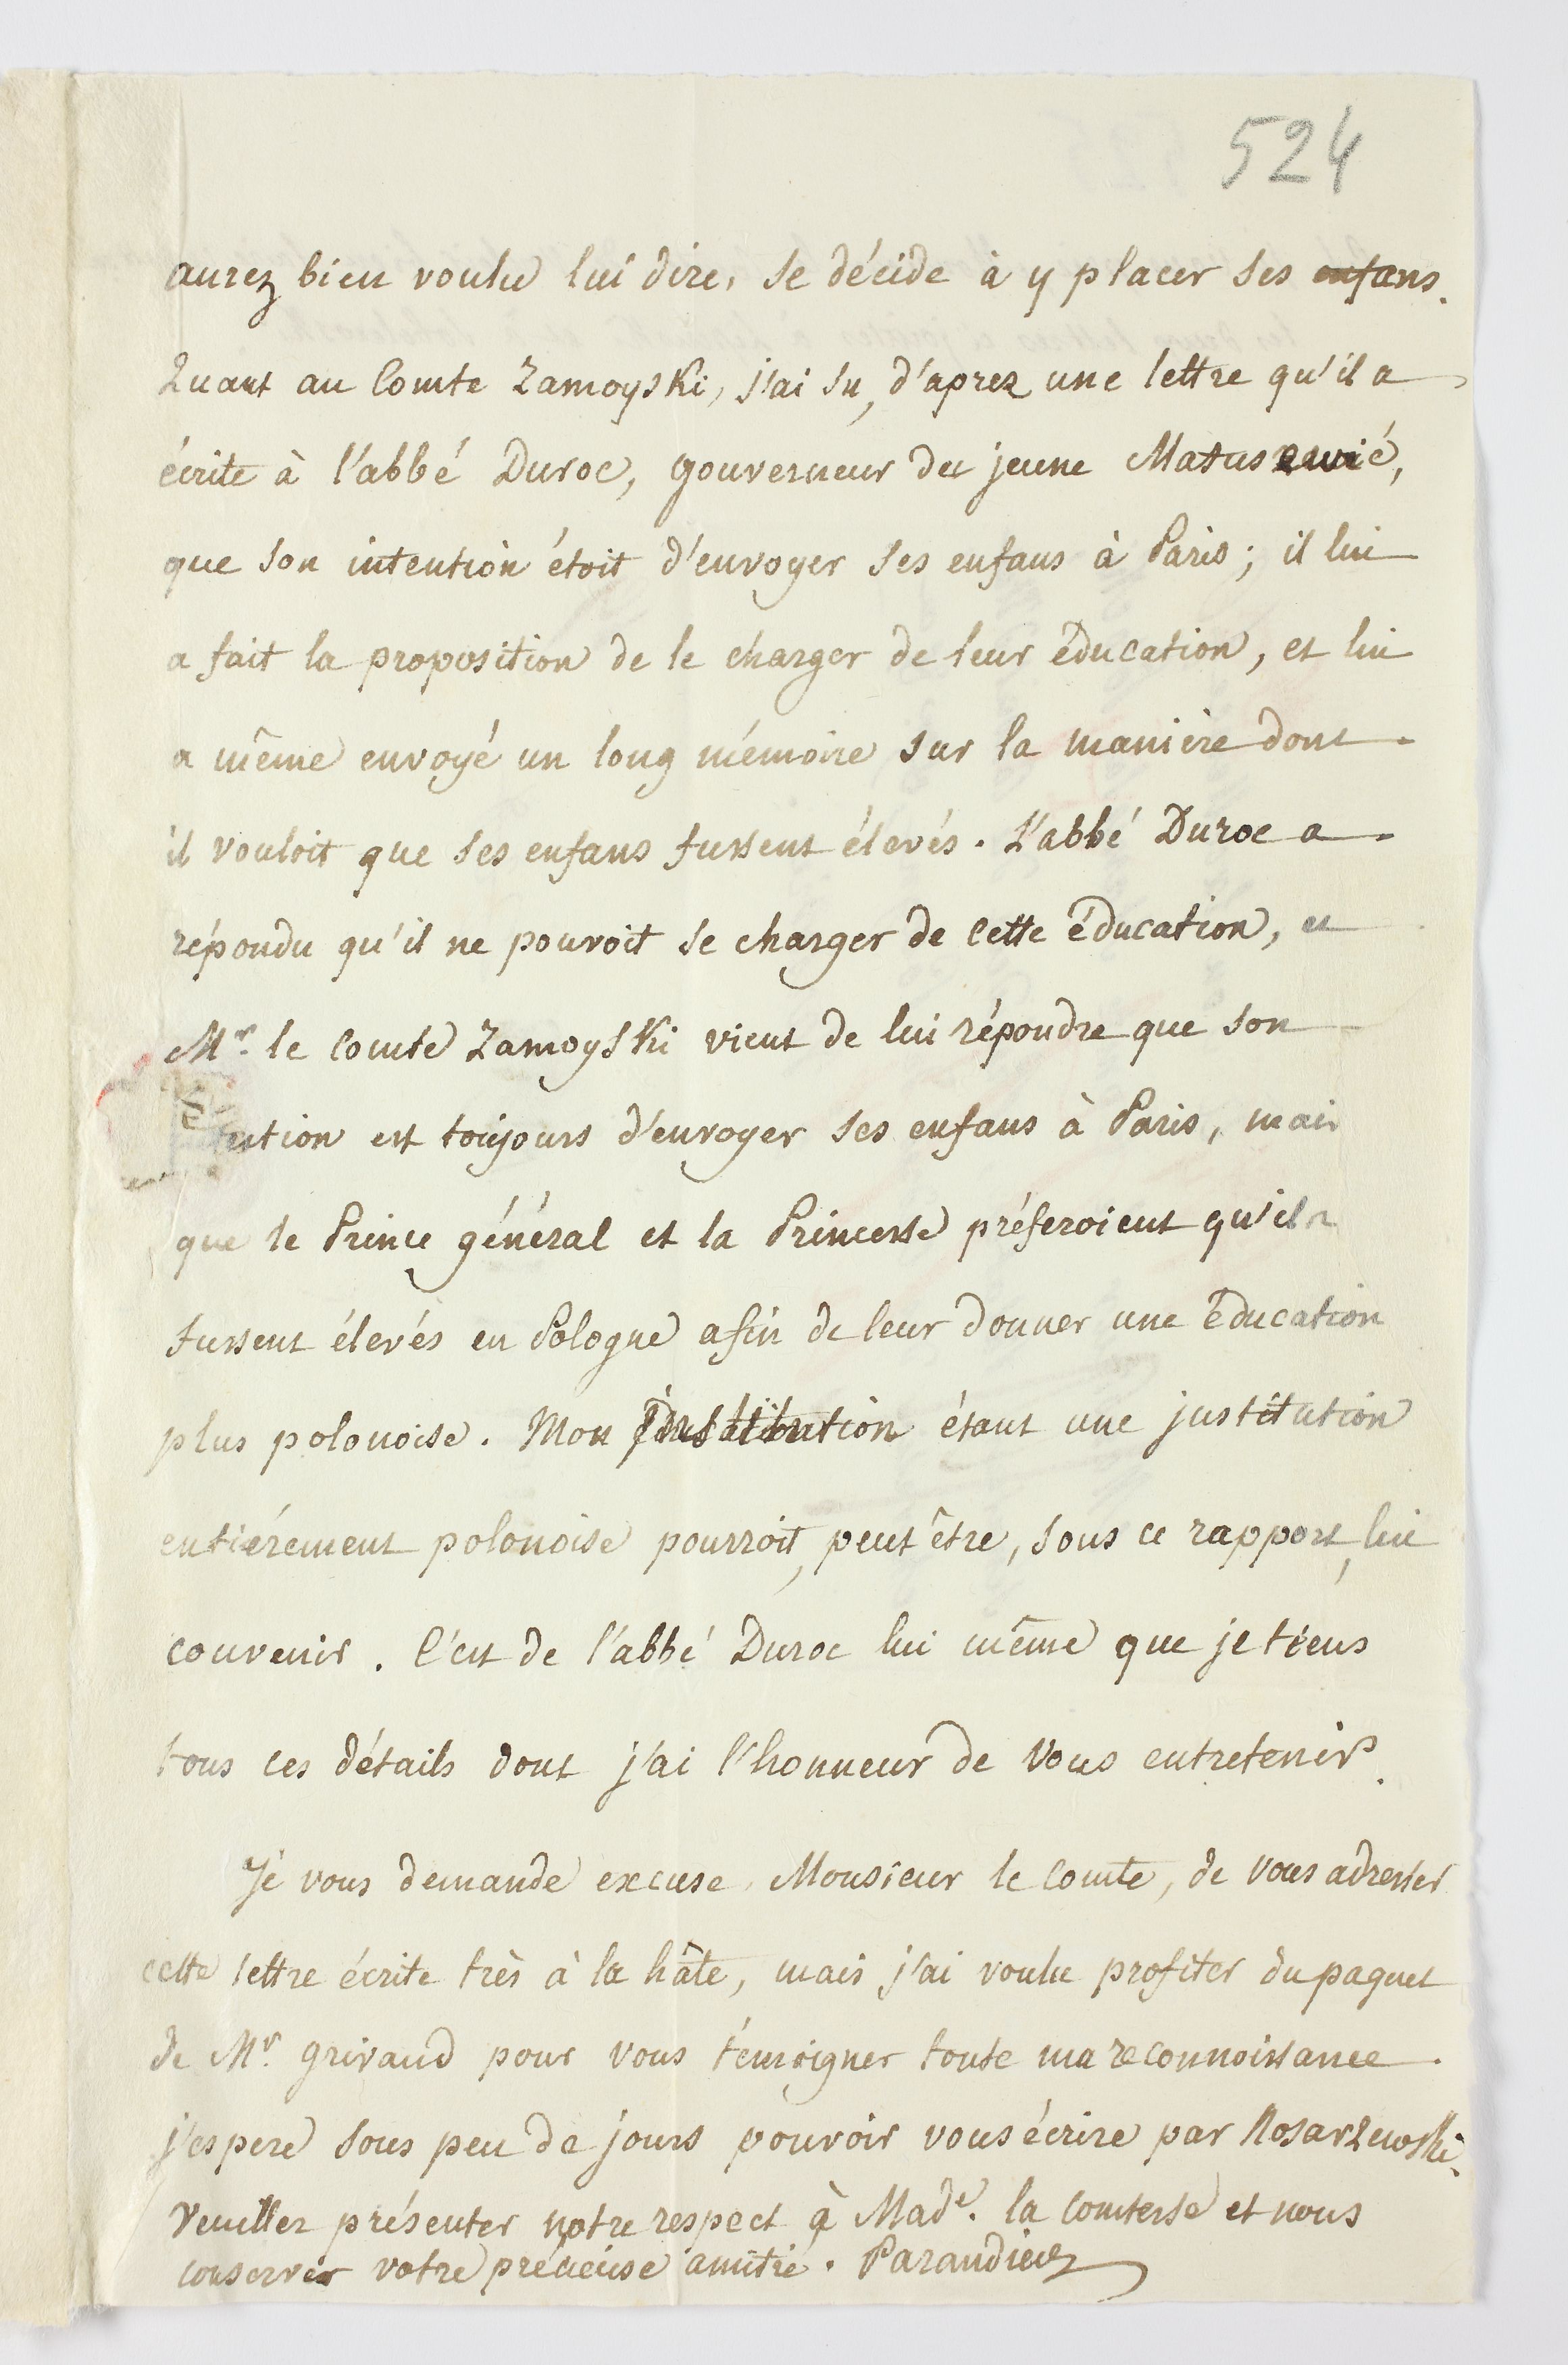 524
aurez bien voulu lui dire, se décide à y placer ses enfans.
Quant au Comte Zamoyski, j'ai su, d'aprez une lettre qu'il a
écrite à l'abbé Duroc, gouverneur du jeune Matusewic,
que son intention étoit d'envoyer ses enfans à Paris; il lui
a fait la proposition de le charger de leur éducation, et lui
a même envoyé un long mémoire sur la manière dont
il vouloit que ses enfans fussent élevés. L'abbé Duroc a
répondu qu'il ne pouvoit se charger de cette éducation, et
Mr. le Comte Zamoyski vient de lui répondre que son
tention est toujours d'envoyer ses enfans à Paris, mais
que le Prince général et la Princesse préferoient qu'ils
fussent élevés en Pologne afin de leur donner une éducation
plus polonoise. Mon institution étant une justitution
entiérement polonoise pourroit, peut être, sous ce rapport, lui
convenir. C'est de l'abbé Duroc lui même que je tiens
tous ces détails dont j'ai l'honneur de vous entretenir.
Je vous demande excuse, Monsieur le Comte, de vous adresser
cette lettre écrite très à la hâte, mais j'ai voulu profiter du paquet
de Mr. Grivaud pour vous témoigner toute ma reconnoissance.
j'espere sous peu de jours pouvoir vous écrire par Kosarzewski.
Veuillez présenter notre respect à Made. la Comtesse et nous
conserver votre précieuse amitié. Parandier